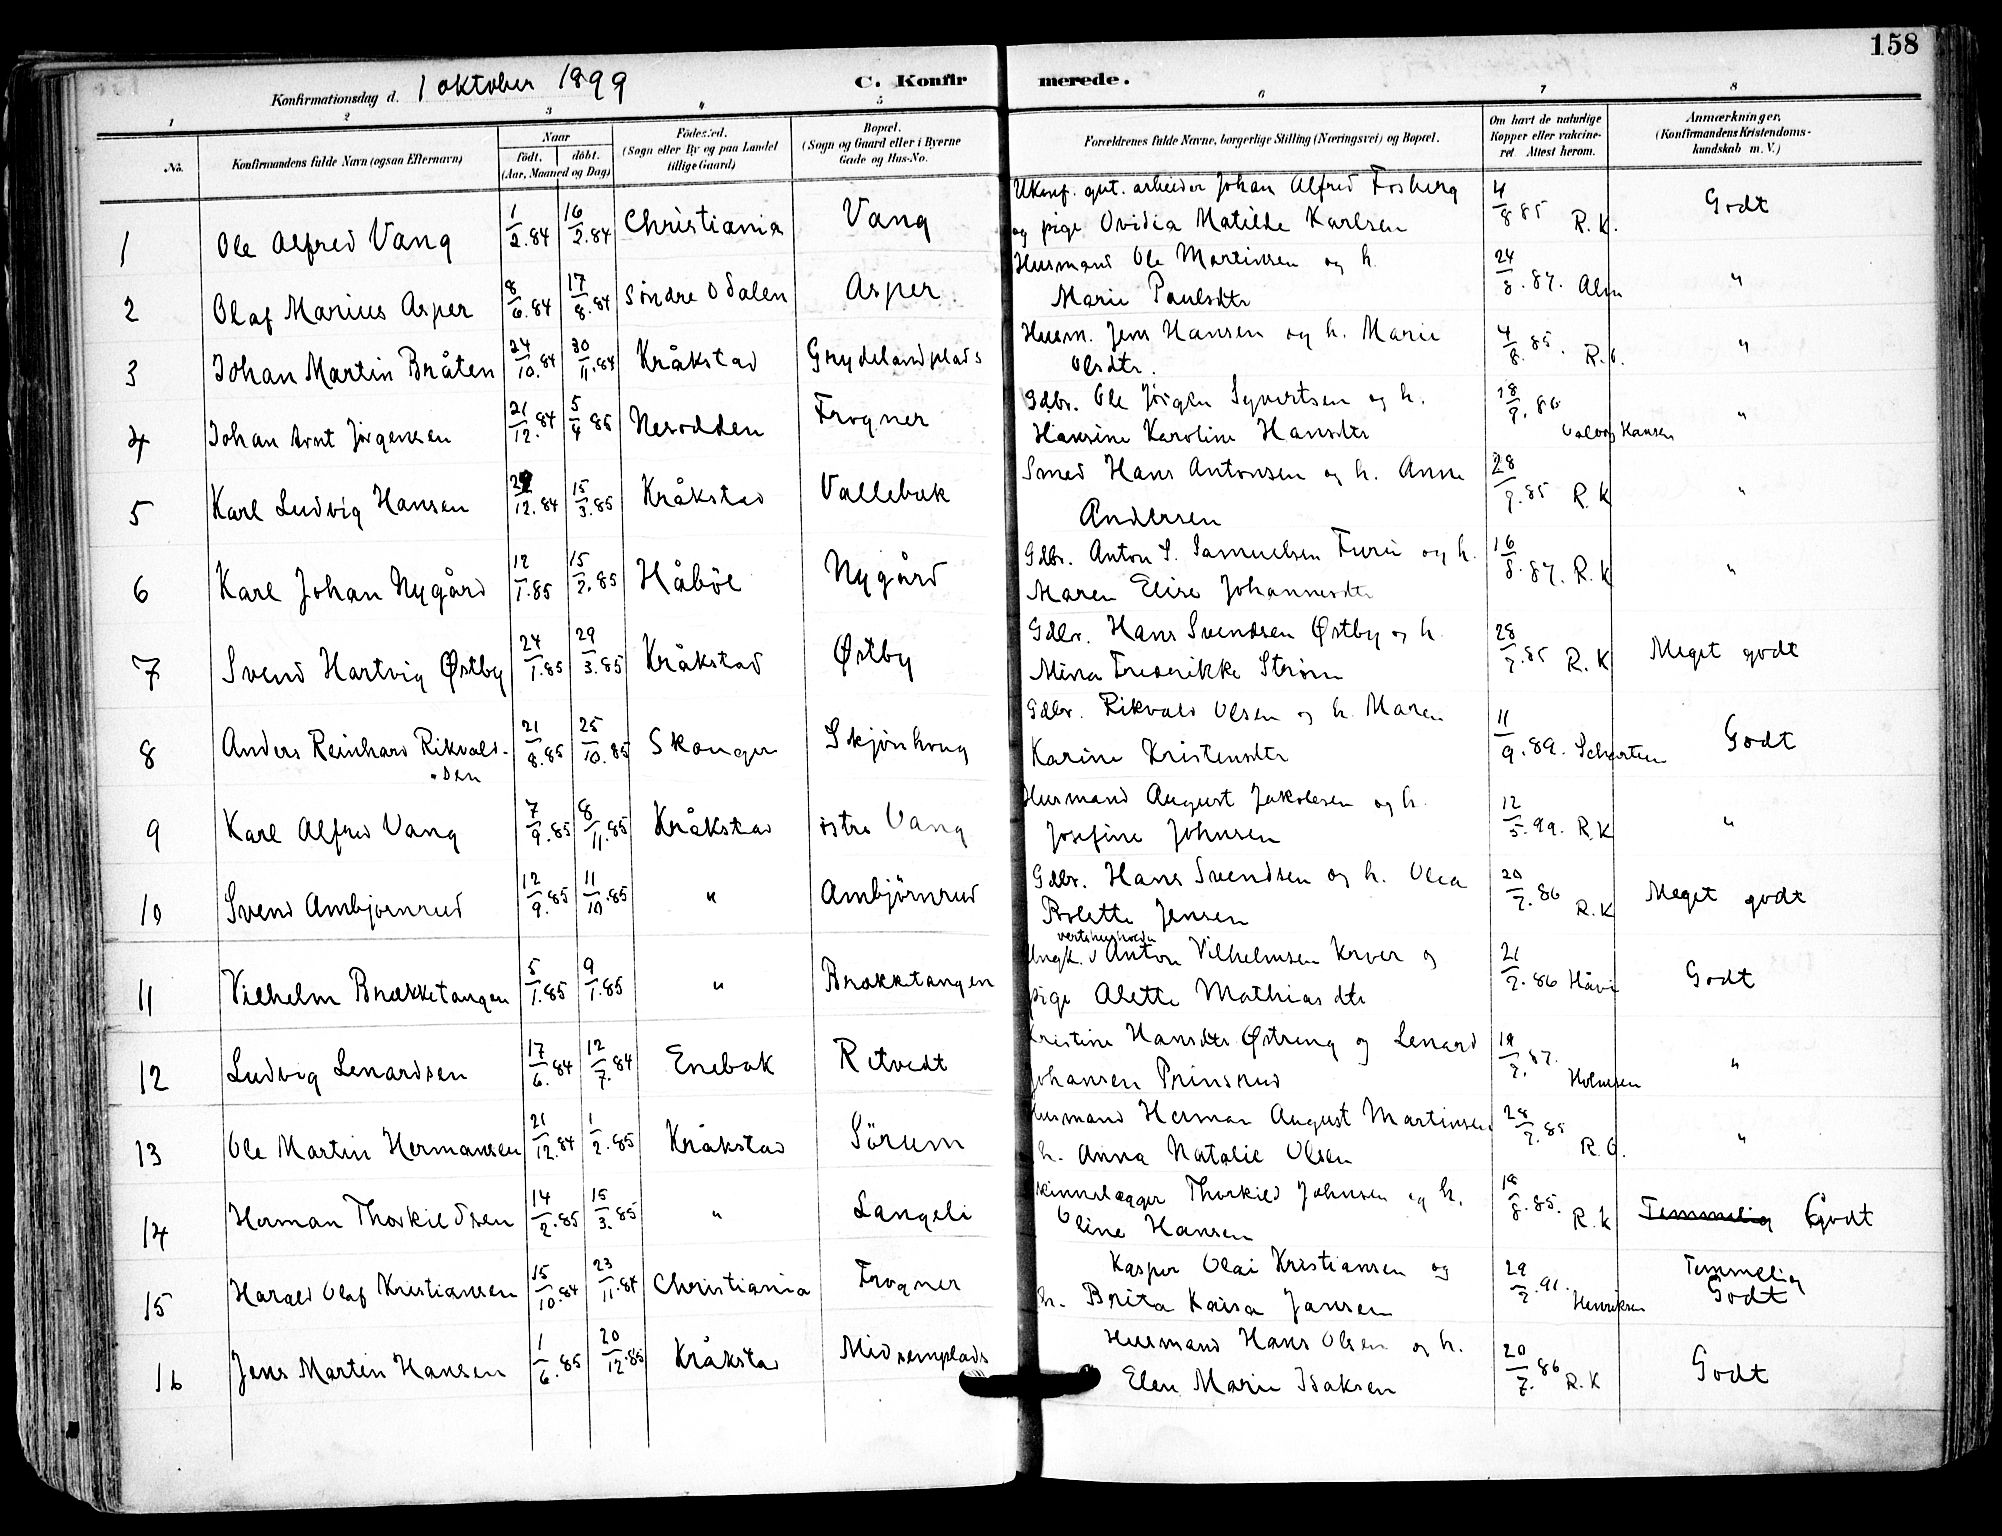 158
Konfirmationsdag d. 1 oktober 1899
C. Konfirmerede.
1 2 3 4 5 6 7 8
No. Konfirmandens fulde Navn (ogsaa Efternavn) Naar født. døbt. (Aar, Maaned og Dag) Fødested. (Sogn eller By og paa Landet tillige Gaard) Bopæl. (Sogn og Gaard eller i Byerne Gade og Hus-No. Forældrenes fulde Navne, borgerlige Stilling (Næringsvei) og Bopæl. Om havt de naturlige Kopper eller vakcineret. Attest herom. Anmærkninger. (Konfirmandens Kristendomskundskab m. V.)
1 Ole Alfred Vang 1/2.84 16/2.84 Christiania Vang arbeider Johan Alfred Fosberg
og pige Ovidia Matilde Karlsen 4/8 85 R.K. Godt
2 Olaf Marius Asper 8/6.84 17/8.84 Søndre Odalen Asper Husmand Ole Martinsen og h.
Marie Paulsdtr 24/8.87. Alm "
3 Johan Martin Bråten 24/10.84 30/11.84 Kråkstad Grydelandplads Husm. Jens Hansen og h. Marie
Olsdtr. 4/8.85. "
4 Johan Arnt Jørgensen 21/12.84 5/4 85 Nesodden Frogner Gdbr. Ole Jørgen Syvertsen og h.
Hansine Karoline Hansdtr Hansen "
5 Karl Ludvig Hansen 12.84 15/3.85 Kråkstad Vallebæk Smed Hans Antonsen og h. Anne
Andersen R.K "
6 Karl Johan Nygård 12/1.85 15/2.85 Håbøl Nygård Gdbr. Anton S. Samuelsen Furu og h.
Maren Elise Johannesdtr 16/8.87. R.K "
7 Svend Hartvig Østby 24/1.85 29/3.85 Kråkstad Østby Gdbr. Hans Svendsen Østby og h.
Mina Frederikke Strøm 28/7.85 R.K Meget godt
8 Anders Reinhard Rikvald-
sen 21/8.85 25/10.85 Skonger Skjønhoug Gdbr. Rikvald Olsen og h. Maren
Karine Kristensdtr 11/9.89. Scharten Godt
9 Karl Alfred Vang 7/9.85 8/11.85 Kråkstad østre Vang Husmand August Jakobsen og h.
Josefine Johnsen 12/5.99. R.K "
10 Svend Ambjørnrud 12/9.85 11/10.85 " Ambjørnrud Gdbr. Hans Svendsen og h. Olea
Bolette Jensen 20/7.86 R.K Meget godt
11 Vilhelm Brækketangen 5/1.85 9/1.85 " Brækketangen Ungk. Anton Vilhelmsen Krver og
pige Alette Mathiasdtr 21/7.86 Godt
12 Ludvig Lenardsen 17/6.84 12/7.84 Enebak Retvedt Kristine Hansdtr Østreng og Lenard
Johansen Prinsrud 19/7.87. Holmsen "
13 Ole Martin Hermansen 21/12.84 1/2.85 Kråkstad Sørum Husmand Herman August Martinsen
h. Anna Natalie Olsen 28/7.85 "
14 Herman Thorkildsen 14/2.85 15/3.85 " Langeli Skinnelægger Thorkild Johnsen og h.
Oline Hansen 18/8.85. R.K Temmelig Godt
15 Harald Olaf Kristiansen 15/10.84 23/11.84 Christiania Frogner Kasper Olai Kristiansen og
h. Brita Kaisa Jansen 29/7.91. Henriksen Temmelig
Godt
16 Jens Martin Hansen 1/6.85 20/12.85 Kråkstad Midsemplads Husmand Hans Olsen og h.
Elen Marie Isaksen 20/7.86 R.K Godt